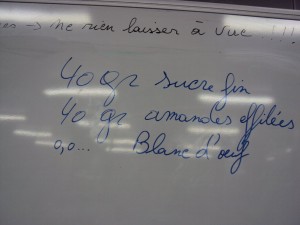 → ne rien laisser à vue !!!!
40 gr sucre fin
40 gr amandes effilées
0,0... Blanc d'oeuf